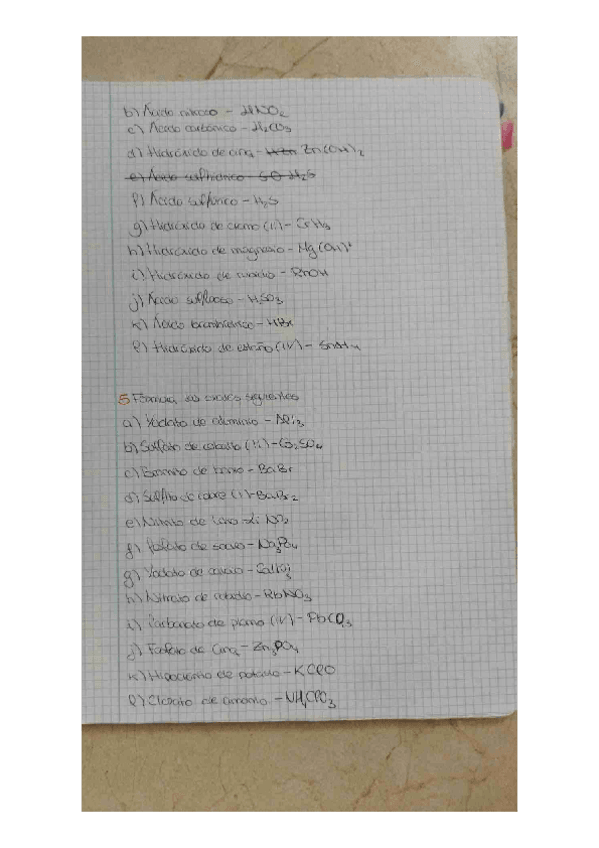 b) Ácido nitroso - HNO₂
c) Ácido carbónico - H₂CO₃
d) Hidróxido de cinq - Zn(OH)₂
e) Ácido sulfhídrico - H₂S
f) Ácido sulfúrico - H₂S
g) Hidróxido de cromo (III) - CrH₃
h) Hidróxido de magnesio - Mg(OH)²
i) Hidróxido de rubidio - RbOH
j) Ácido sulfuroso - H₂SO₃
k) Ácido bromhídrico - HBr
l) Hidróxido de estaño (IV) - SnH₄
5 Formula las oxales siguientes
a) Yodato de aluminio - AlI₃
b) Sulfato de cobalto - SO₄
c) de bario - BaBr
d) Sulfito de cobre (I) - BaBr₂
e) Nitrito de - NO₂
f) Fosfato de sodio - Na₃PO₄
g) Yodato de calcio -
h) Nitrato de rubidio - RbNO₃
i) Carbonato de plomo (IV) - PbCO₃
j) Fosfato de Cinq - Zn₃PO₄
k) Hipoclorito de potasio - KClO
l) Clorato de amonio - NH₄ClO₃